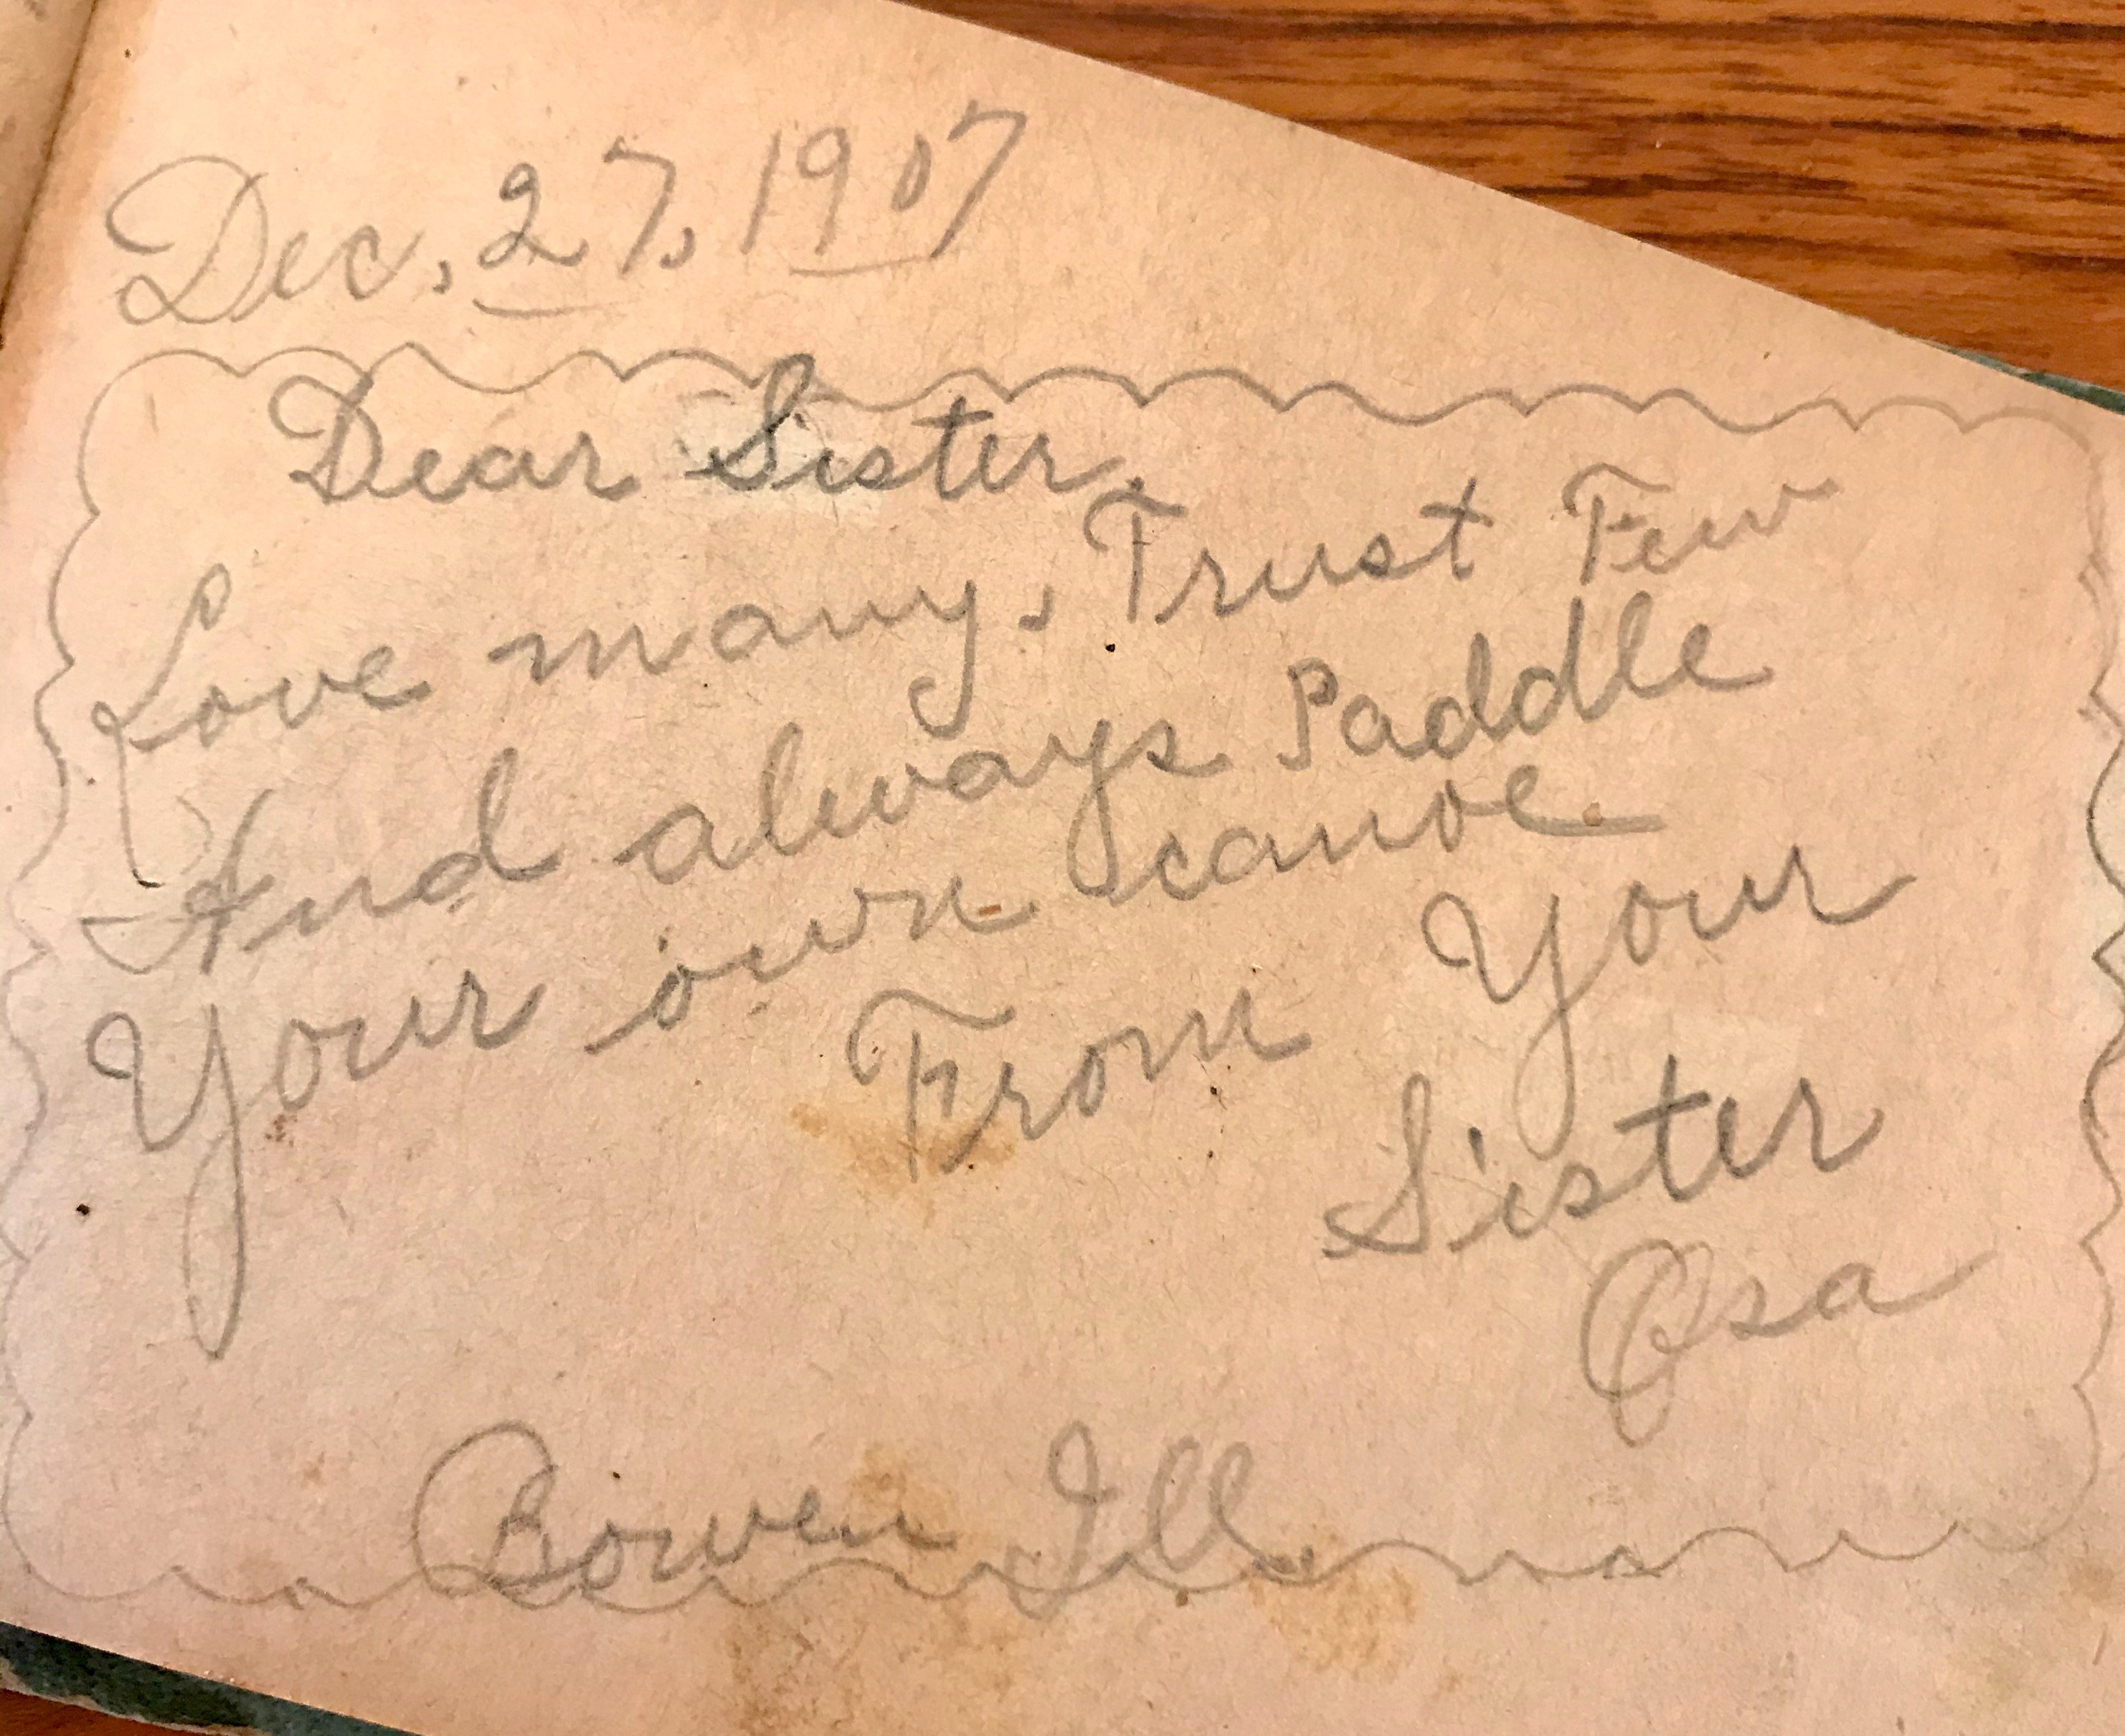 Dec. 27, 1907
Dear Sister,
Love many, Trust Few
And always Paddle
Your own canoe.
From Your
Sister
Osa
Bowen Ill